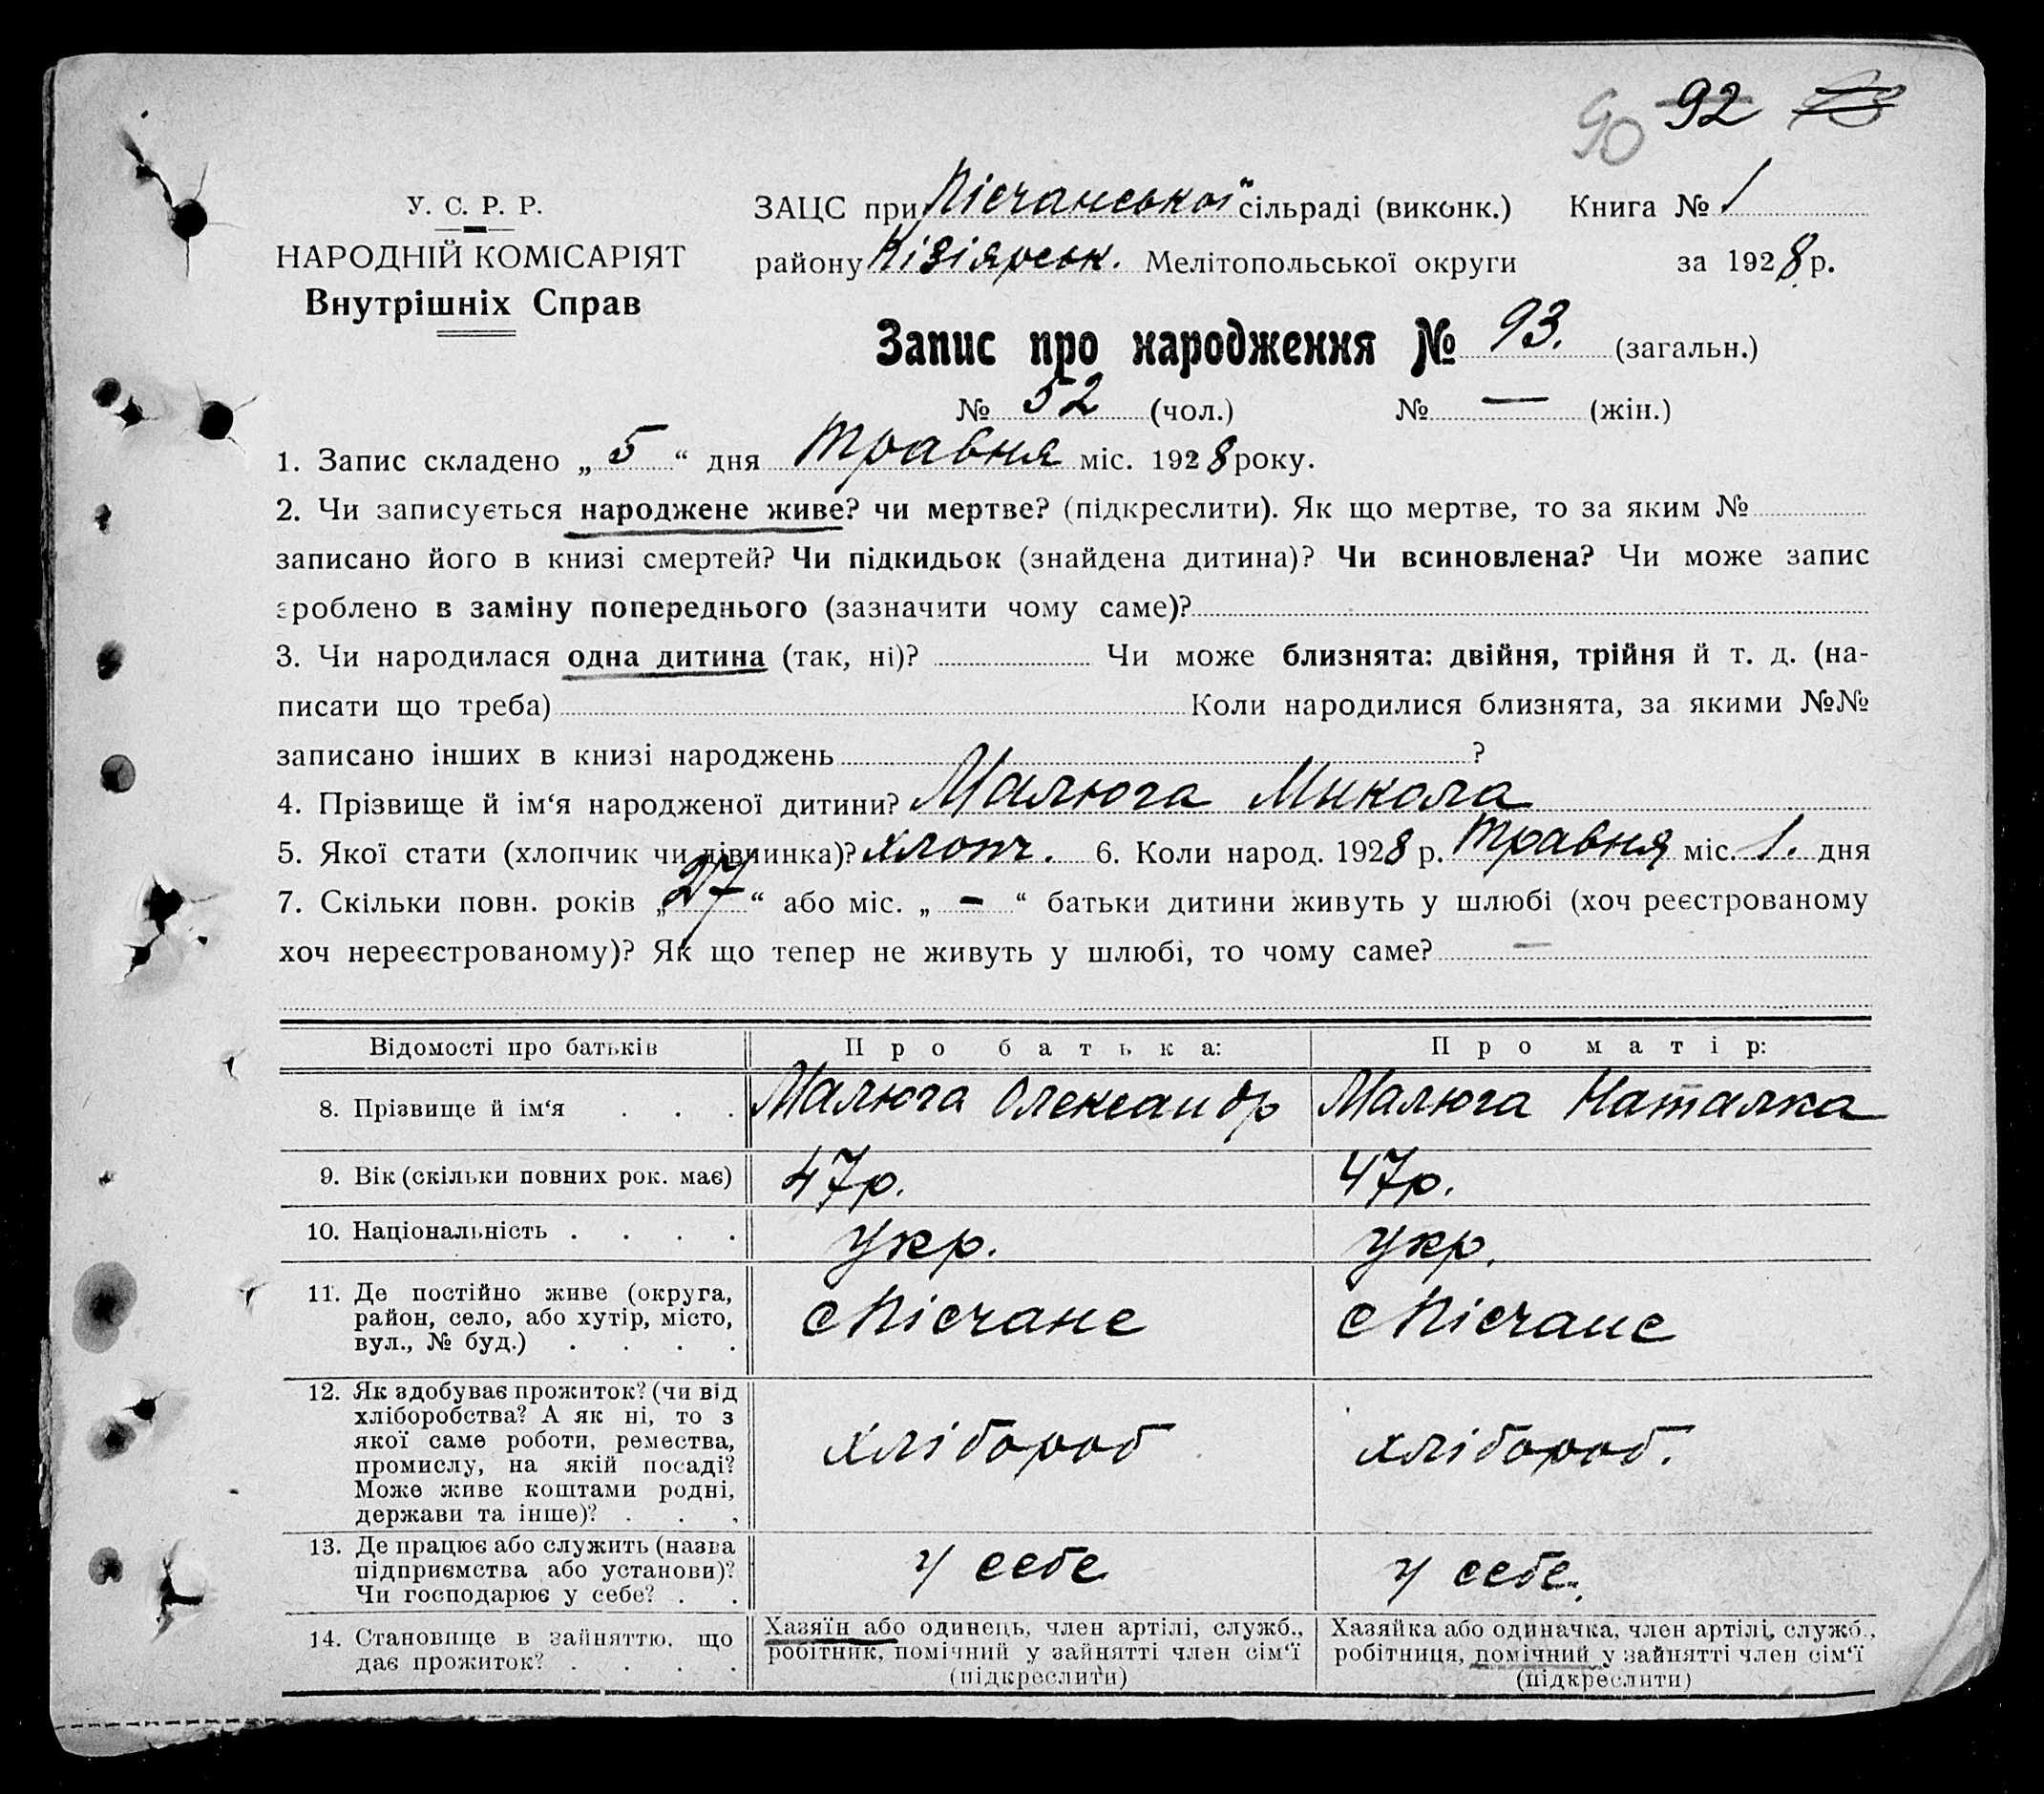 90 92
У. С. Р. Р.
НАРОДНІЙ КОМІСАРІЯТ
Внутрішніх Справ
ЗАЦС при Пісчанської сільраді (виконк.) Книга № 1
району Кізіярськ. Мелітопольської округи за 1928 р.
Запис про народження № 93. (загальн.)
№ 52 (чол.) № — (жін.)
1. Запис складено „ 5 “ дня травня міс. 1928 року.
2. Чи записується народжене живе? чи мертве? (підкреслити). Як що мертве, то за яким №
записано його в книзі смертей? Чи підкидьок (знайдена дитина)? Чи всиновлена? Чи може запис
зроблено в заміну попереднього (зазначити чому саме)?
3. Чи народилася одна дитина (так, ні)? Чи може близнята: двійня, трійня й т. д. (на-
писати що треба) Коли народилися близнята, за якими №№
записано інших в книзі народжень ?
4. Прізвище й ім‘я народженої дитини? Малюга Микола
5. Якої стати (хлопчик чи дівчинка)? хлопч. 6. Коли народ. 1928 р. травня міс. 1. дня
7. Скільки повн. років „ 27 “ або міс. „ - “ батьки дитини живуть у шлюбі (хоч реєстрованому
хоч нереєстрованому)? Як що тепер не живуть у шлюбі, то чому саме? —
Відомості про батьків Про батька: Про матір:
8. Прізвище й ім‘я . . . Малюга Олександр Малюга Наталка
9. Вік (скільки повних рок. має) 47 р. 47 р.
10. Національність . . . . Укр. Укр.
11. Де постійно живе (округа,
район, село, або хутір, місто,
вул., № буд.) . . . .
с Пісчане с Пісчане
12. Як здобуває прожиток? (чи від
хліборобства? А як ні, то з
якої саме роботи, ремества,
промислу, на якій посаді?
Може живе коштами родні,
держави та інше)? . . .
хлібороб хлібороб.
13. Де працює або служить (назва
підприємства або установи)?
Чи господарює у себе? . .
у себе у себе.
14. Становище в зайняттю, що
дає прожиток? . . . .
Хазяїн або одинець, член артілі, служб.,
робітник, помічний у зайнятті член сім‘ї
(підкреслити)
Хазяйка або одиначка, член артілі, служб.,
робітниця, помічний у зайнятті член сім‘ї
(підкреслити)